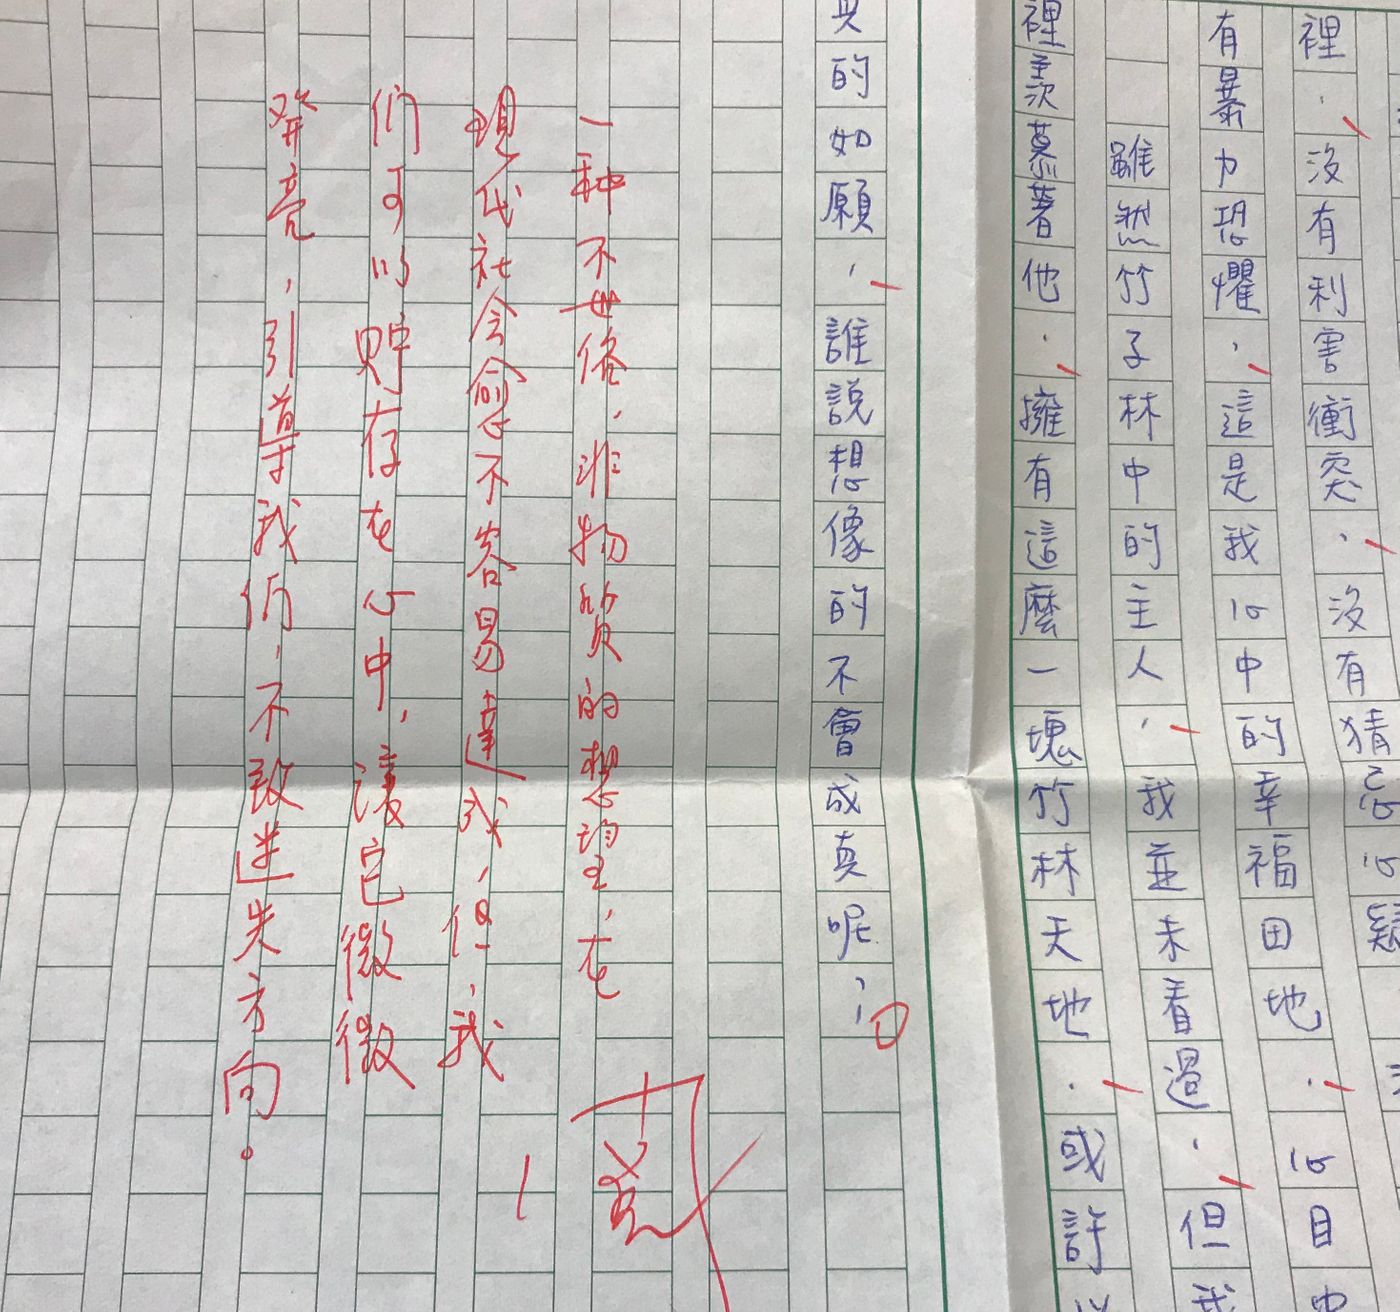 裡,沒有利害衝突,沒有猜忌心疑
有暴力恐懼,這是我心中的幸福田地,心目中
雖然竹子林中的主人,我並未看過,但我
裡羨慕著他,擁有這麼一塊竹林天地,或許
的如願,誰說想像的不會成真呢
一种不世俗、非物質的想望,在
現代社会愈不容易達成,但,我
们可以貯存在心中,讓它微微
發亮,引導我们,不致迷失方向。